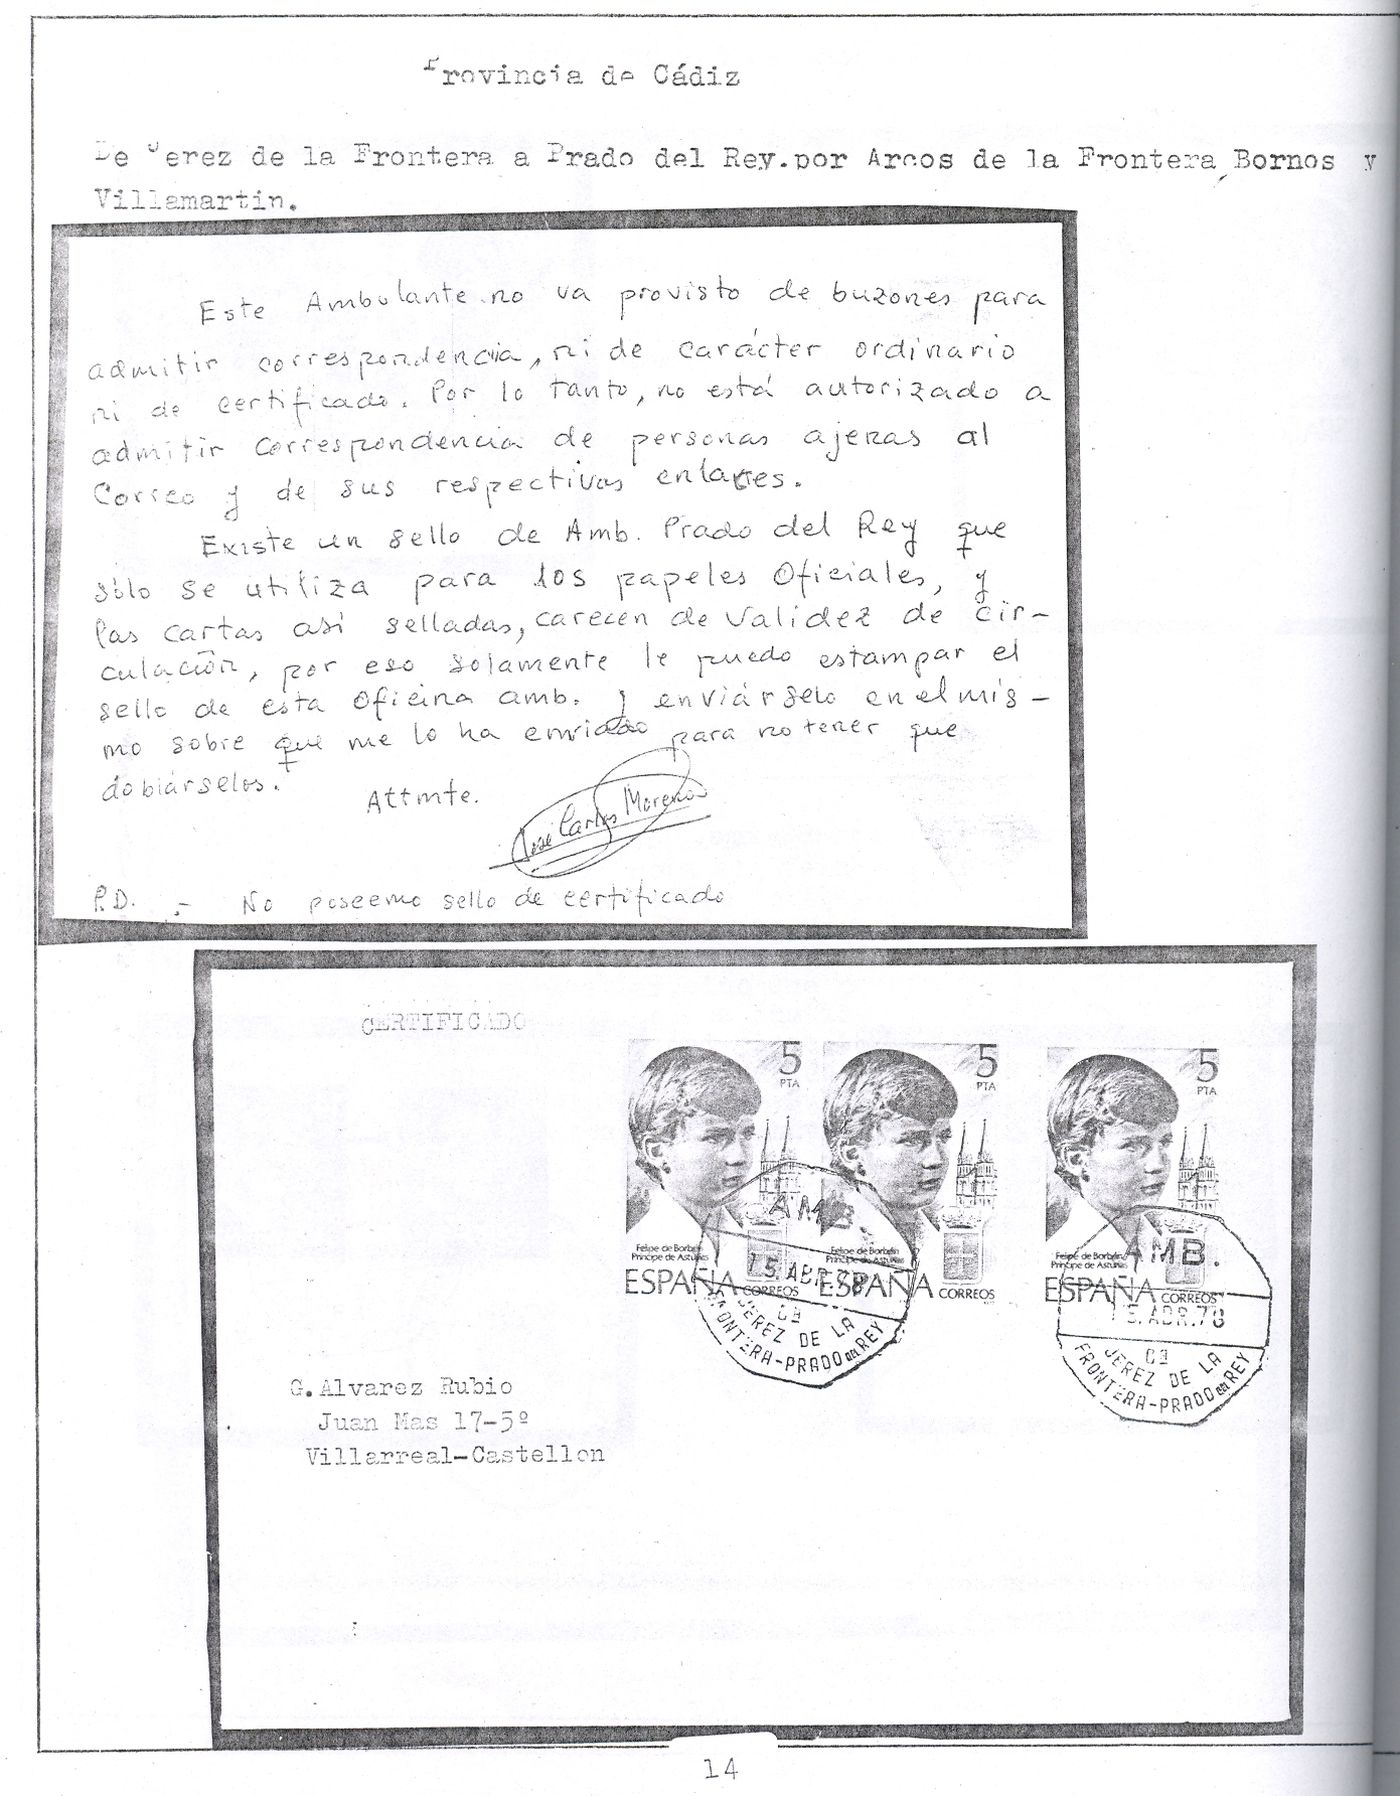 Provincia de Cádiz
De Jerez de la Frontera a Prado del Rey.por Arcos de la Frontera,Bornos y
Villamartin.
Este Ambulante no va provisto de buzones para
admitir correspondencia, ni de carácter ordinario
ni de certificado. Por lo tanto, no está autorizado a
admitir correspondencia de personas ajenas al
Correo y de sus respectivos enlaces.
Existe un sello de Amb. Prado del Rey que
sólo se utiliza para los papeles Oficiales, y
las cartas así selladas, carecen de validez de cir-
culación, por eso solamente le puedo estampar el
sello de esta Oficina amb. y enviárselo en el mis-
mo sobre que me lo ha enviado para no tener que
doblárselos.
Attmte.
José Carlos Moreno
P.D. .- No poseemo sello de certificado
CERTIFICADO
5 PTA
Felipe de Borbón
Príncipe de Asturias
ESPAÑA CORREOS
5 PTA
Felipe de Borbón
Príncipe de Asturias
ESPAÑA CORREOS
5 PTA
Felipe de Borbón
Príncipe de Asturias
ESPAÑA CORREOS
AMB
15 ABR.78
JEREZ DE LA
FRONTERA-PRADO DEL REY
AMB.
15.ABR.78
JEREZ DE LA
FRONTERA-PRADO DEL REY
G.Alvarez Rubio
Juan Mas 17-5º
Villarreal-Castellon
14